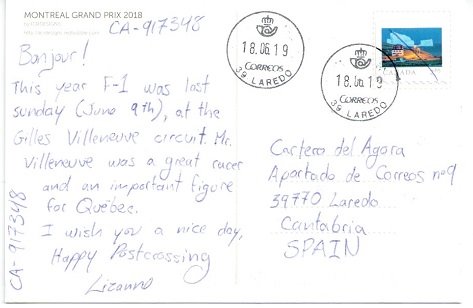 MONTREAL GRAND PRIX 2018
CA-917348
Bonjour!
This year F-1 was last
sunday (June 9th), at the
Gilles Villeneuve circuit. Mr.
Villeneuve was a great racer
and an important figure
for Québec.
I wish you a nice day,
Happy Postcrossing
Lizanne
CA-917348
18.06.19
CORREOS
39 LAREDO
18.06.19
CORREOS
39 LAREDO
CANADA
Cartero del Agora
Apartado de Correos nº9
39770 Laredo
Cantabria
SPAIN